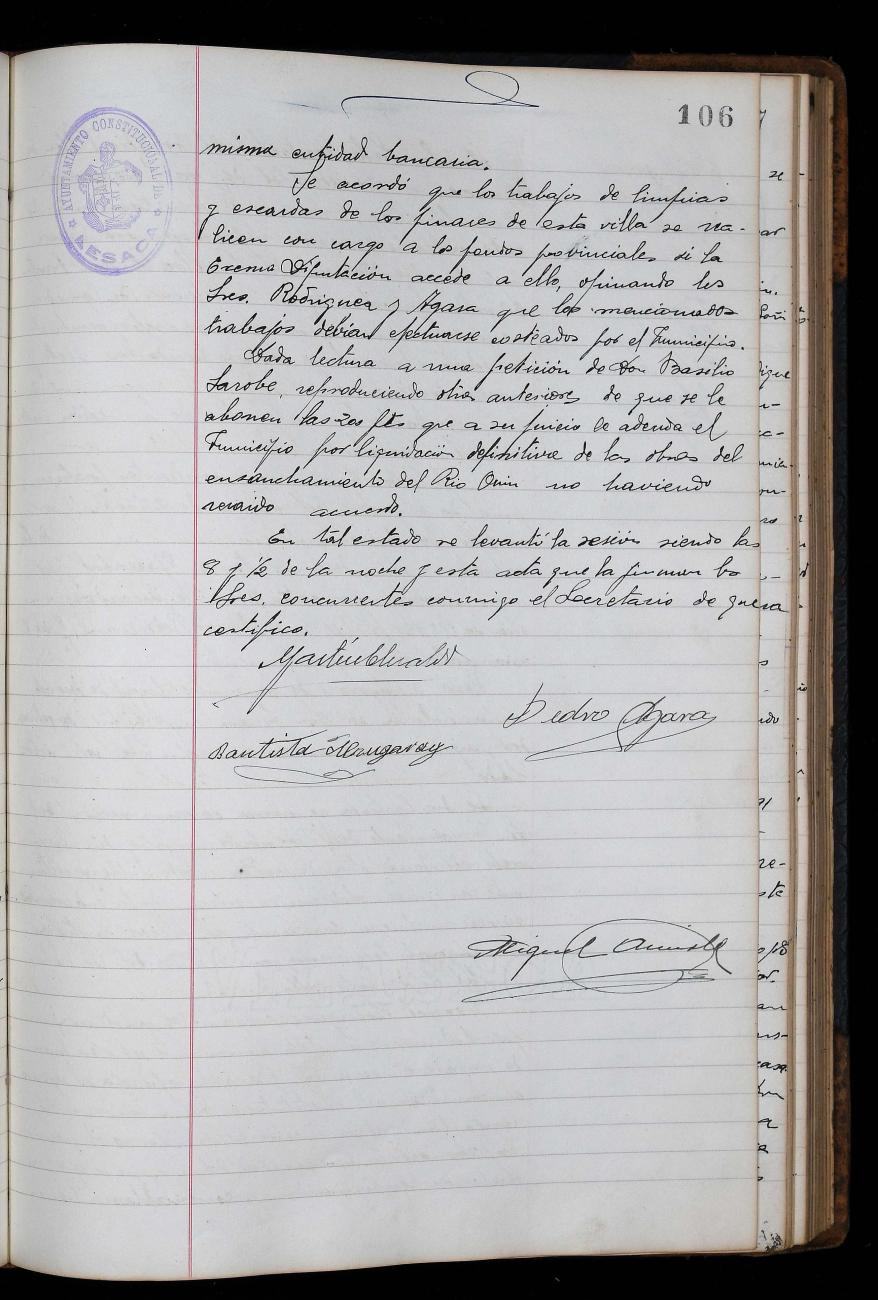 106
AYUNTAMIENTO CONSTITUCIONAL DE
LESACA
misma entidad bancaria.
Se acordó que los trabajos de limpias
y escardas de los pinares de esta villa se rea-
licen con cargo a los fondos provinciales si la
Excma Diputación accede a ello, opinando los
Sres. Rodriguez y Agara que los mencionados
trabajos debian efectuarse costeados por el Municipio.
Dada lectura a una petición de Don Basilio
Larobe, reproduciendo otras anteriores de que se le
abonen las 200 pts que a su juicio le adeuda el
Municipio por liquidación definitiva de las obras del
ensanchamiento del Rio Onin no haviendo
recaido acuerdo.
En tal estado se levantó la sesión siendo las
8 y 1/2 de la noche y esta acta que la firman los
Sres. concurrentes conmigo el Secretario de que
certifico.
Martin
Pedro Agara
Bautista
Miguel